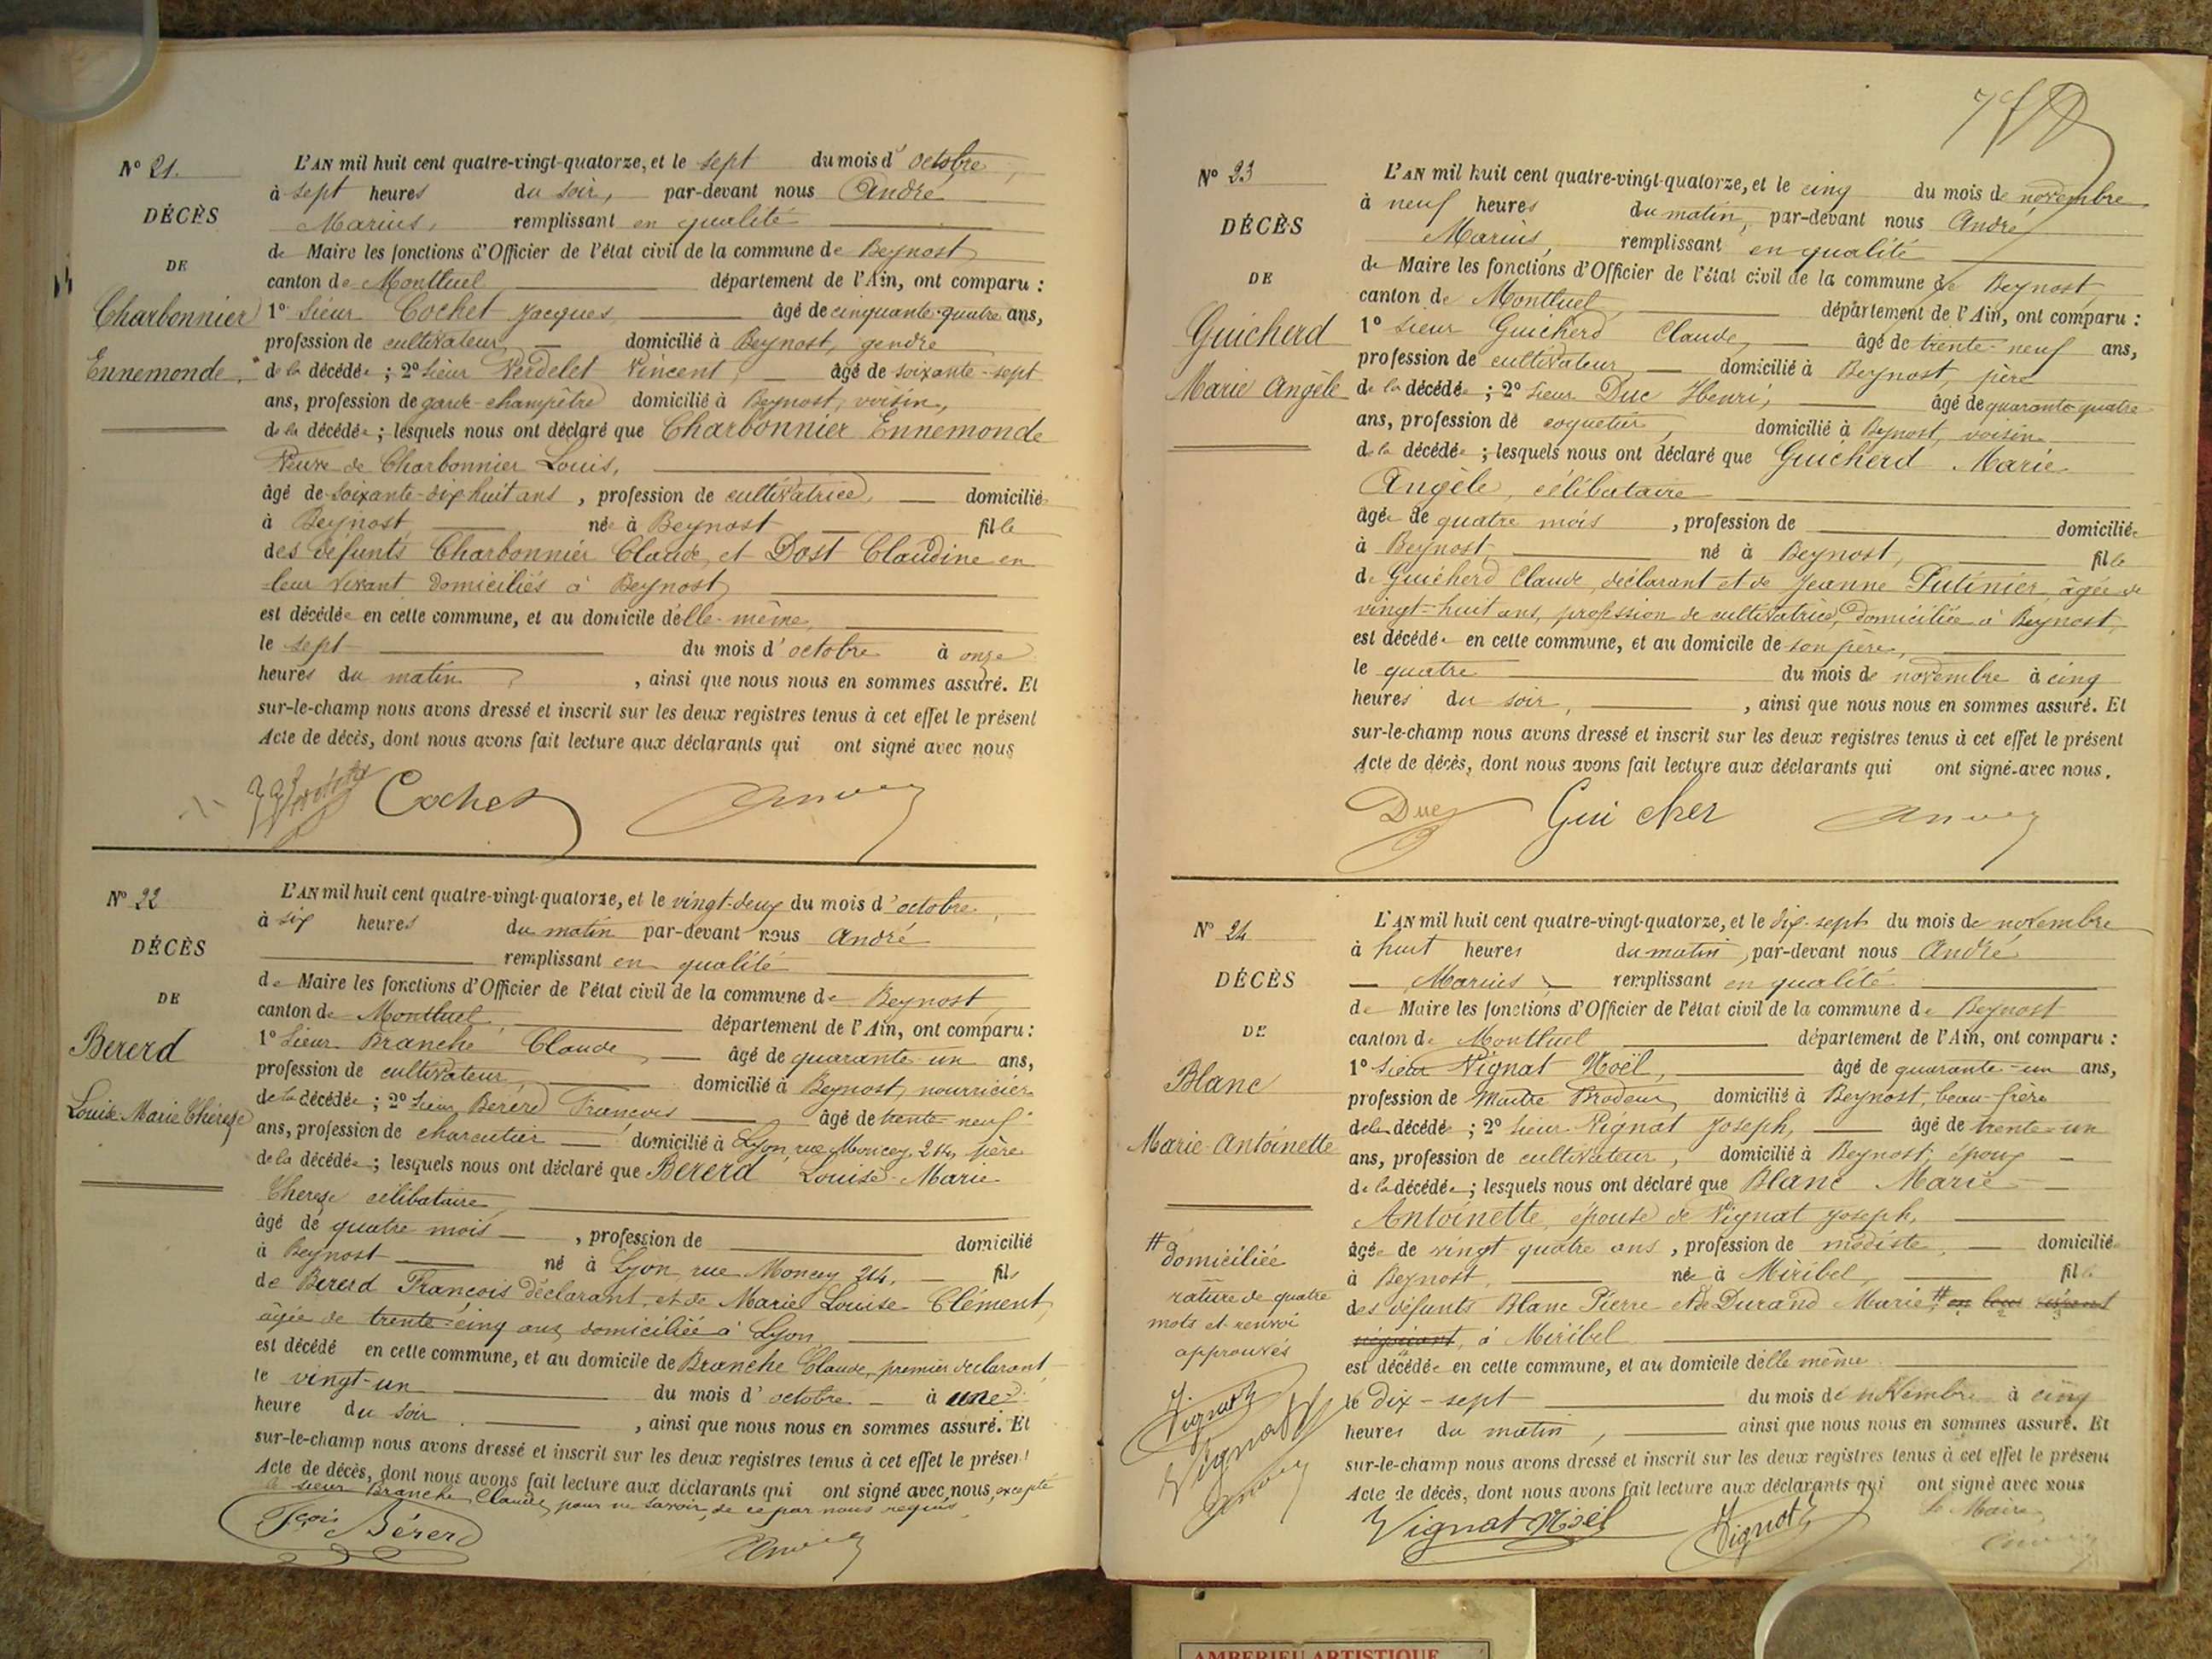 N° 21.
DÉCÈS
DE
Charbonnier
Ennemonde.
L'AN mil huit cent quatre-vingt-quatorze, et le sept du mois d'octobre,
à sept heures du soir, par-devant nous André
Marius, remplissant en qualité
de Maire les fonctions d'Officier de l'état civil de la commune de Beynost
canton de Montluel département de l'Ain, ont comparu :
1° Sieur Cochet Jacques âgé de cinquante-quatre ans,
profession de cultivateur domicilié à Beynost, gendre
de la décédée ; 2° Sieur Verdelet Vincent, âgé de soixante-sept
ans, profession de garde-champêtre domicilié à Beynost, voisin,
de la décédée ; lesquels nous ont déclaré que Charbonnier Ennemonde
Veuve de Charbonnier Louis,
âgé de soixante-dix huit ans, profession de cultivatrice, domicilié
à Beynost, née à Beynost fille
des défunts Charbonnier Claude, et Dost Claudine en
leur vivant domiciliés à Beynost,
est décédée en cette commune, et au domicile d'elle-même,
le sept du mois d'octobre à onze
heures du matin, ainsi que nous nous en sommes assuré. Et
sur-le-champ nous avons dressé et inscrit sur les deux registres tenus à cet effet le présent
Acte de décès, dont nous avons fait lecture aux déclarants qui ont signé avec nous
Cochet
N° 22
DÉCÈS
DE
Bererd
Louise Marie Thérèze
L'AN mil huit cent quatre-vingt-quatorze, et le vingt-deux du mois d'octobre,
à six heures du matin par-devant nous André
remplissant en qualité
de Maire les fonctions d'Officier de l'état civil de la commune de Beynost
canton de Montluel, département de l'Ain, ont comparu :
1° Sieur Branche Claude, âgé de quarante-un ans,
profession de cultivateur, domicilié à Beynost, nourricier
de la décédée ; 2° Sieur Bererd François âgé de trente-neuf
ans, profession de charcutier domicilié à Lyon, rue Moncey, 214, père
de la décédée ; lesquels nous ont déclaré que Bererd Louise-Marie
Thereze célibataire,
âgé de quatre mois, profession de domicilié
à Beynost né à Lyon, rue Moncey 214, fils
de Bererd François déclarant, et de Marie Louise Clément,
âgée de trente-cinq ans, domiciliée à Lyon,
est décédé en cette commune, et au domicile de Branche Claude, premier déclarant,
le vingt-un du mois d'octobre à une
heure du soir, ainsi que nous nous en sommes assuré. Et
sur-le-champ nous avons dressé et inscrit sur les deux registres tenus à cet effet le présent
Acte de décès, dont nous avons fait lecture aux déclarants qui ont signé avec nous, excepté
le sieur Branche Claude, pour ne savoir, de ce par nous requis.
Fçois Bérerd
N° 23
DÉCÈS
DE
Guicherd
Marie Angèle
L'AN mil huit cent quatre-vingt-quatorze, et le cinq du mois de novembre
à neuf heures du matin, par-devant nous André
Marius, remplissant en qualité
de Maire les fonctions d'Officier de l'état civil de la commune de Beynost
canton de Montluel département de l'Ain, ont comparu :
1° Sieur Guicherd Claude, âgé de trente-neuf ans,
profession de cultivateur domicilié à Beynost, père
de la décédée ; 2° Sieur Duc Henri, âgé de quarante-quatre
ans, profession de coquetier, domicilié à Beynost, voisin
de la décédée ; lesquels nous ont déclaré que Guicherd Marie
Angèle, célibataire
âgée de quatre mois, profession de domiciliée
à Beynost, né à Beynost, fille
de Guicherd Claude, déclarant et de Jeanne Putinier, âgée de
vingt-huit ans, profession de cultivatrice, domiciliée à Beynost,
est décédée en cette commune, et au domicile de son père,
le quatre du mois de novembre à cinq
heures du soir, ainsi que nous nous en sommes assuré. Et
sur-le-champ nous avons dressé et inscrit sur les deux registres tenus à cet effet le présent
Acte de décès, dont nous avons fait lecture aux déclarants qui ont signé avec nous.
Duc Gui cher
N° 24
DÉCÈS
DE
Blanc
Marie-Antoinette
# domiciliée
rature de quatre
mots et renvoi
approuvés
Vignat
Vignat
L'AN mil huit cent quatre-vingt-quatorze, et le dix-sept du mois de novembre
à huit heures du matin, par-devant nous André
Marius, remplissant en qualité
de Maire les fonctions d'Officier de l'état civil de la commune de Beynost
canton de Montluel département de l'Ain, ont comparu :
1° Sieur Vignat Noël, âgé de quarante-un ans,
profession de Maître Brodeur, domicilié à Beynost, beau-frère
de la décédée ; 2° Sieur Vignat Joseph, âgé de trente-un
ans, profession de cultivateur, domicilié à Beynost, époux
de la décédée ; lesquels nous ont déclaré que Blanc Marie
Antoinette, épouse de Vignat Joseph,
âgée de vingt quatre ans, profession de modiste, domiciliée
à Beynost, née à Miribel, fille
des défunts Blanc Pierre et de Durand Marie, # en leur vivant
à Miribel
est décédée en cette commune, et au domicile d'elle même
le dix-sept du mois de novembre à cinq
heures du matin, ainsi que nous nous en sommes assuré. Et
sur-le-champ nous avons dressé et inscrit sur les deux registres tenus à cet effet le présent
Acte de décès, dont nous avons fait lecture aux déclarants qui ont signé avec nous
Le Maire
Vignat Noël Vignat
AMBERIEU ARTISTIQUE